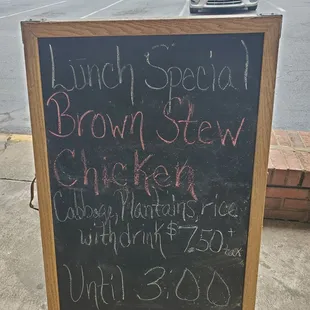 Lunch Special
Brown Stew
Chicken
Cabbage, Plantains, rice
with drink $7.50 + tax
Until 3:00